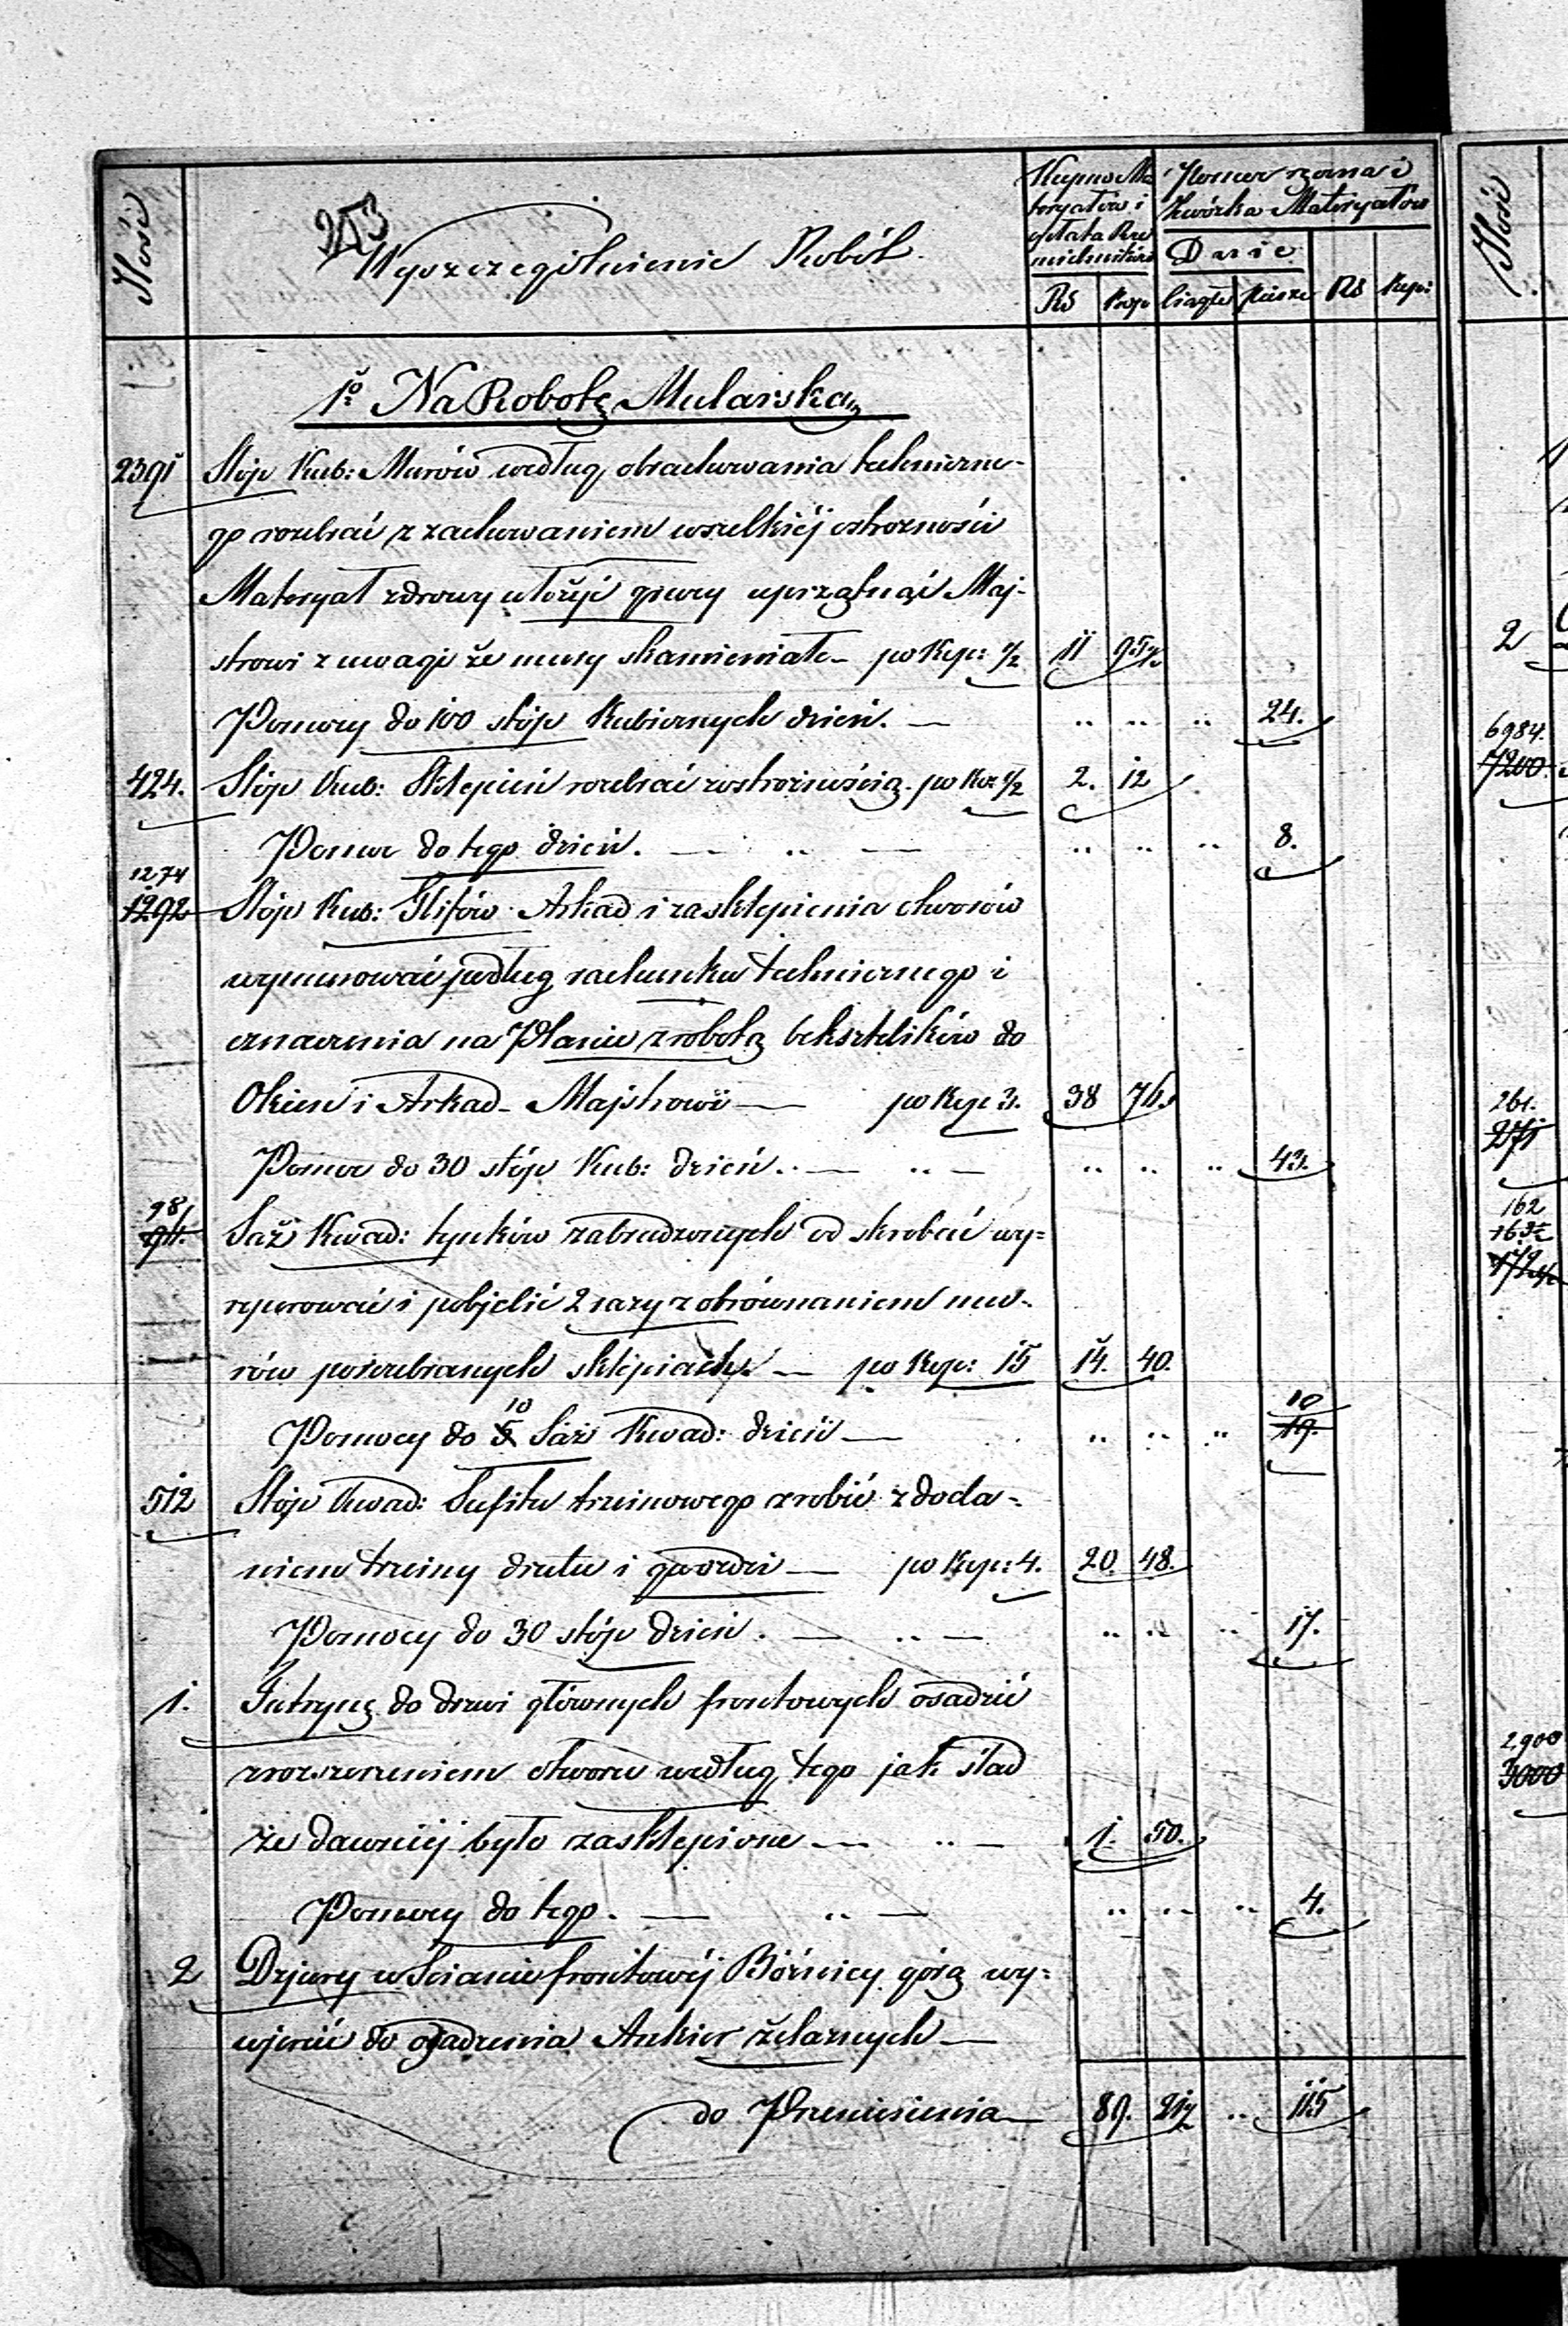 Ilość
253
Wyszczególnienie Robót
Kupno Ma
teryałów i
opłata Rze
mieślników
Pomoc ręczna i
Zwózka Materyałów
Dnie
Rs Kop ciągłe piesze Rs Kop:
Ilość
1º Na Robotę Mularską
2391 Stóp Kub: Murów według obrachowania techniczne-
go rozebrać z zachowaniem wszelkiéj ostrożności
Materyał zdrowy ułożyć gruzy uprzątnąć Maj-
strowi z uwagi że mury skamieniałe - po Kop: 1/2 11 95 1/2
Pomocy do 100 stóp Kubicznych dzień. — 24.
424. Stóp Kub: Sklepień rozebrać z ostrożnością po Kop 1/2 2. 12
Pomoc do tego dzień. — 8.
1274
1292 Stóp Kub: Glifów Arkad i zasklepienia otworów
wymurować podług rachunku technicznego i
znaczenia na Planie z robotą beksztelików do
Okien i Arkad - Majstrowi — po Kop 3. 38 76.
Pomoc do 30 stóp Kub: dzień. — 43.
98
94. Saż Kwad: tynków zabrudzonych od skrobać wy=
reperować i pobjelić 2 razy z obrównaniem mu-
rów porozbieranych sklepiach — po Kop: 15 14. 40.
10
Pomocy do 5 Saż Kwad: dzień — 10
19.
512 Stóp Kwad: Sufitu trzcinowego zrobić z doda=
niem trzciny drutu i gwoździ — po Kop: 4. 20. 48.
Pomocy do 30 stóp dzień. — 17.
1. Futrynę do drzwi głównych frontowych osadzić
z rozszerzeniem otworu według tego jak ślad
że dawniéj było zasklepione — 1. 50.
Pomocy do tego. — 4.
2 Dziury w Ścianie frontowéj Bóżnicy górą wy=
do osadzenia Ankier żelaznych —
do Przeniesienia — 89. 21 1/2 115
2
6984.
7200.
261.
271
162
172
2900
3000